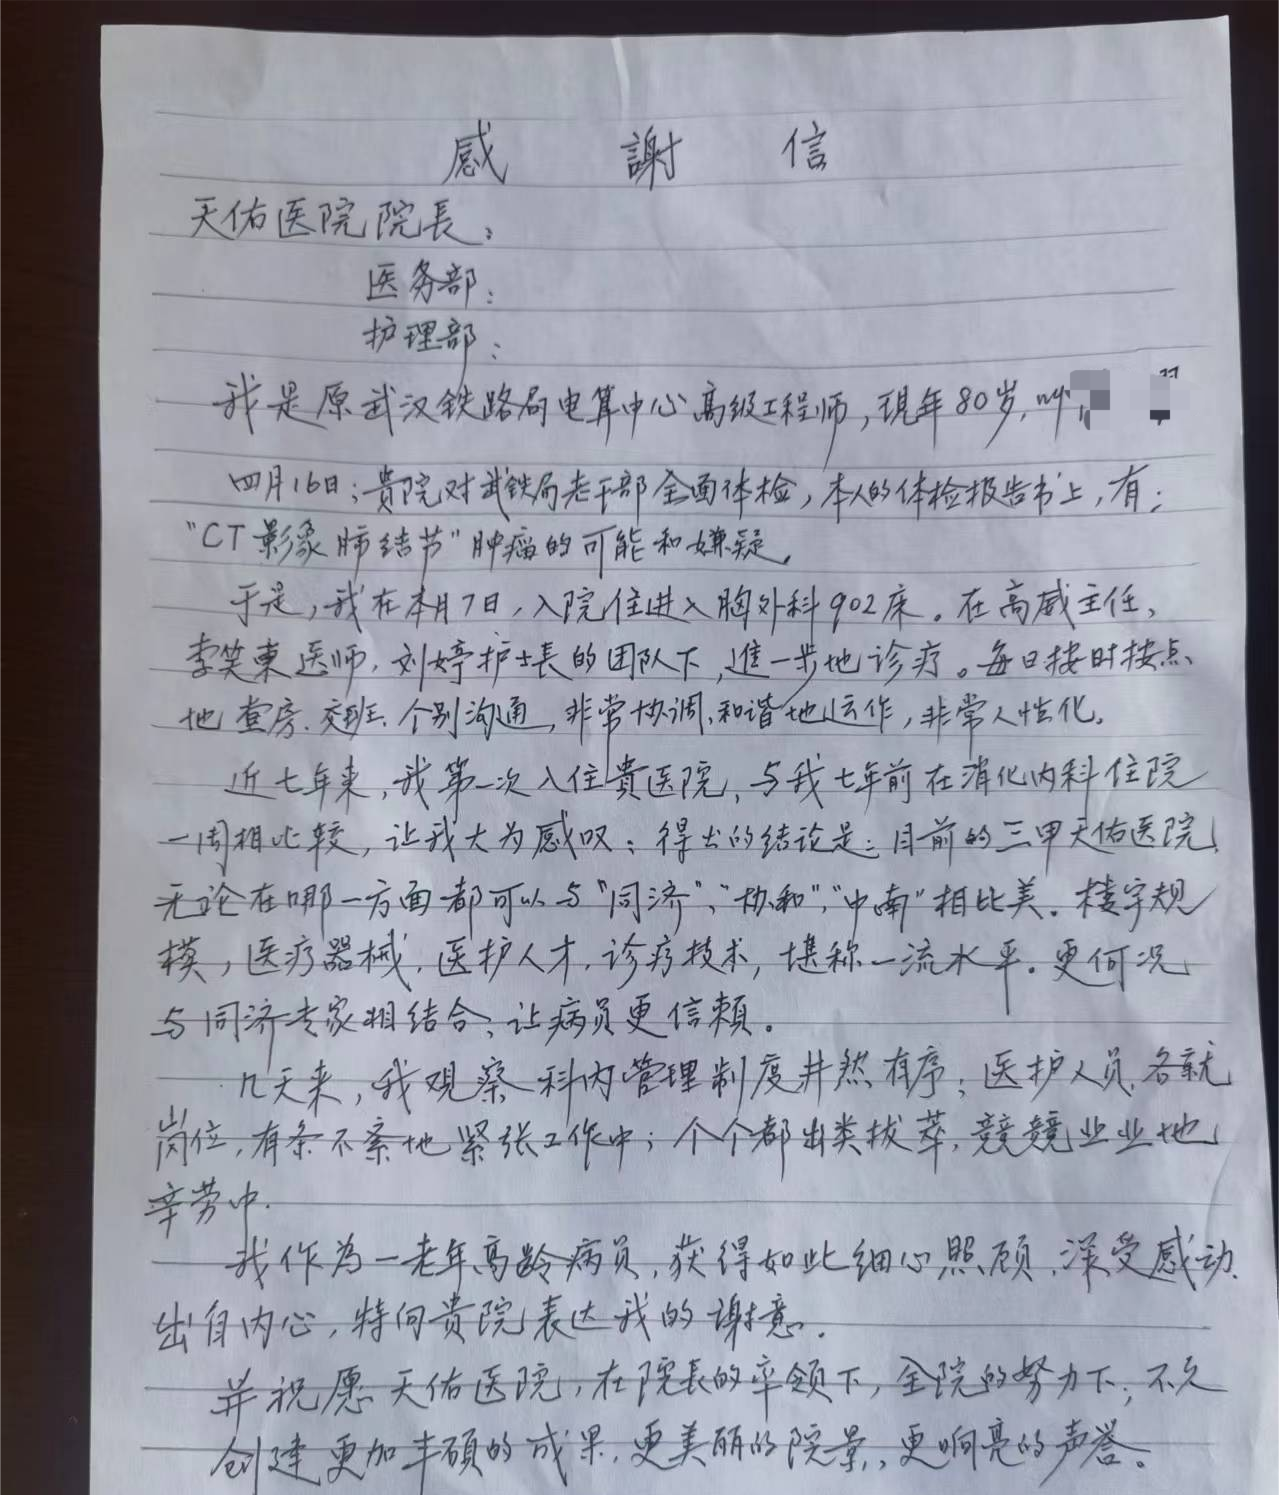 感謝信
天佑医院院長：
医务部：
护理部：
我是原武汉铁路局电算中心高级工程师，現年80岁，叫
四月16日；貴院对武铁局老干部全面体检，本人的体检报告书上，有：
“CT影象肺结节”肿瘤的可能和嫌疑。
于是，我在本月7日，入院住进入胸外科902床。在高威主任、
李笑東医师，刘婷护士長的团队下，進一步地诊疗。每日按时按点
地查房、交班、个别沟通，非常协调、和谐地运作，非常人性化。
近七年来，我第一次入住貴医院，与我七年前在消化内科住院
一周相比较，让我大为感叹；得出的结论是：目前的三甲天佑医院，
无论在哪一方面都可以与“同济”、“协和”、“中南”相比美。楼宇规
模，医疗器械，医护人才，诊疗技术，堪称一流水平。更何况
与同济专家相结合，让病员更信賴。
几天来，我观察科内管理制度井然有序；医护人员各就
岗位，有条不紊地紧张工作中；个个都出类拔萃，兢兢业业地
辛劳中。
我作为一老年高龄病员，获得如此细心照顾，深受感动，
出自内心，特向贵院表达我的谢意。
并祝愿天佑医院，在院長的率领下，全院的努力下，不久
创建更加丰硕的成果，更美丽的院景，更响亮的声誉。